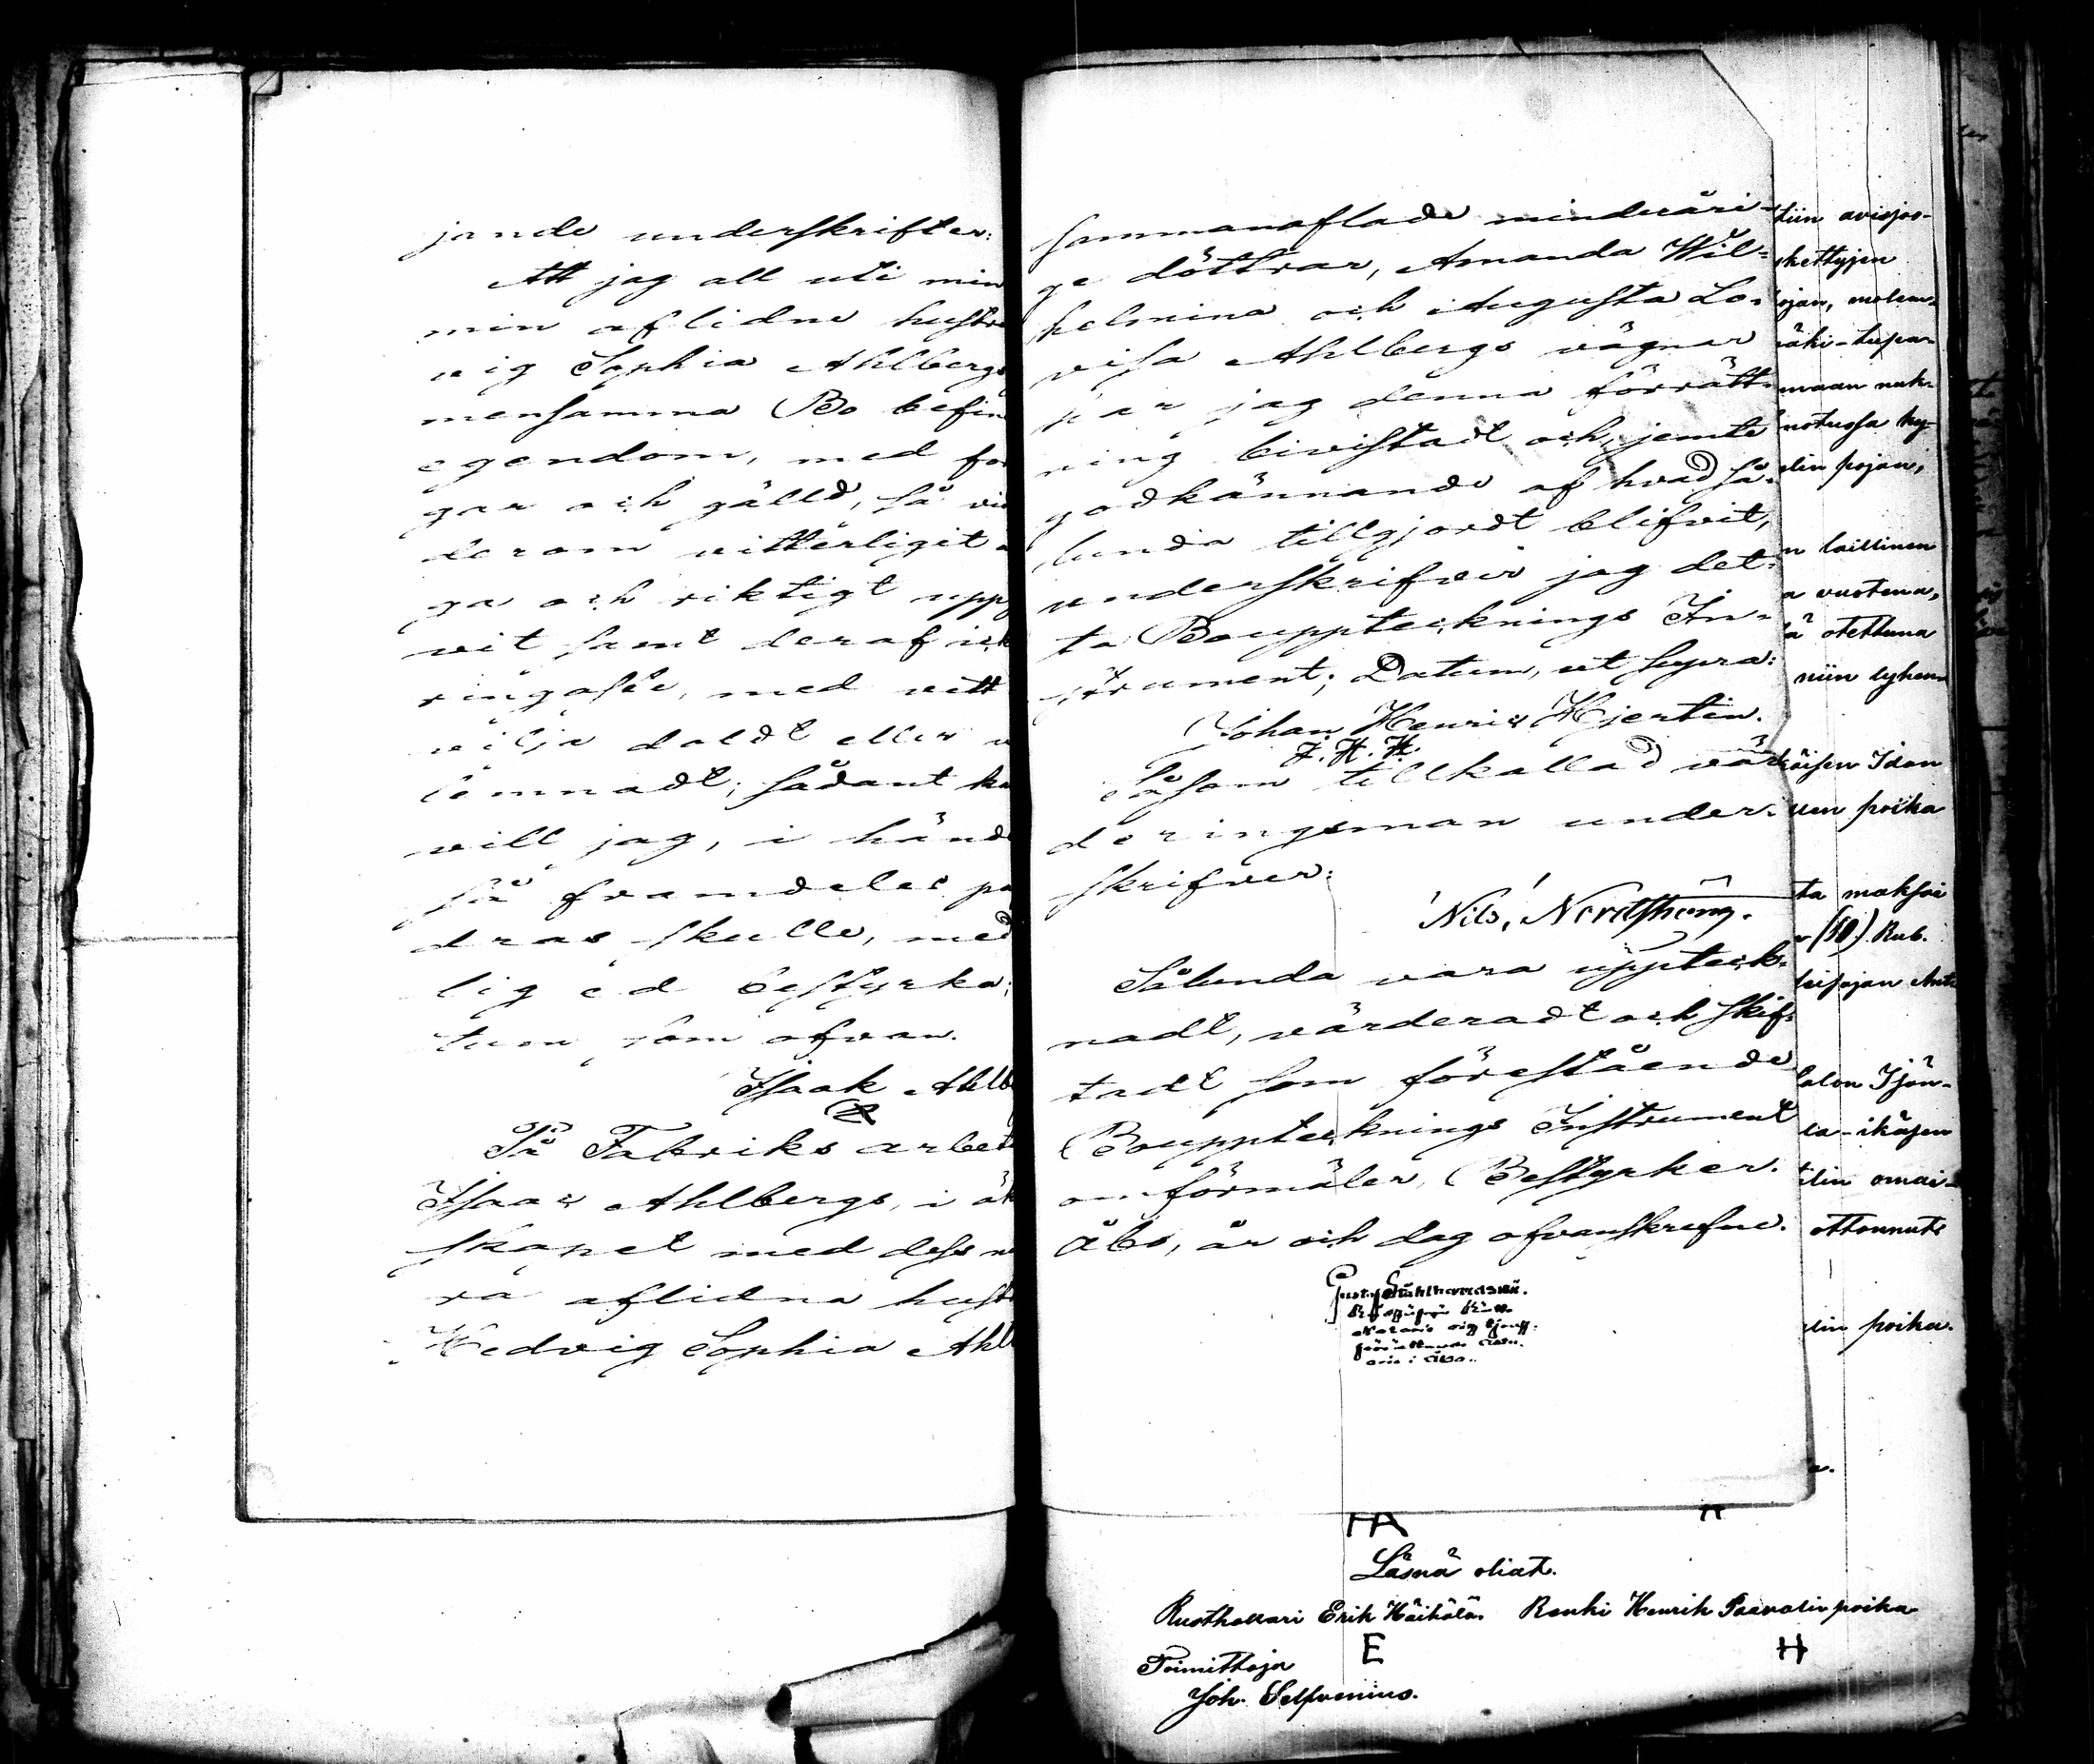 jande underskrifter:
Att jag all uti min
min aflidne hustru
vig Sophia Ahlbergs
mensamma Bo befin
egendom, med for
gar och gälld, så vid
derom vitterligit
ga och riktigt upp
vit samt deraf ick
ringaste, med vett
vilja doldt eller
lemnadt; sådant ka
vill jag, i hände
så framdeles på
dras skulle, med
lig ed bestyrka;
tum som ofvan.
Isaak Ahlb
På Fabriks arbet
Isaac Ahlbergs, i äk
skapet med dess
ra aflidna hust
Hedvig Sophia Ahl
sammanaflade minderåri-
ge döttrar, Amanda Wil-
helmina och Augusta Lo-
visa Ahlbergs vägnar
har jag denna förrätt-
ning bivistadt och jemte
godkännande af hvad så-
lunda tillgjordt blifvit,
underskrifver jag det-
ta Bouppteknings In-
strument; Datum, ut supra:
Johan Henric Hjertin.
J. H. H.
Såsom tillkallad vär-
deringsman under-
skrifver:
Nils, Nordström.
Sålunda vara uppteck-
nadt, värderadt och skif-
tadt som förestående
Boupptecknings Instrument
omförmäler, Bestyrker.
Åbo, år och dag ofvanskrefne.
i Åbo.
tiin avisjoo-
skettyjen
ojan, molem-
äki-tupan
maan nuk-
notussa hy-
elin pojan,
n laillinen
a vuotena,
ä otettuna
niin lyhen
käisen Idan
uen poika
ta maksai
(10) Rub.
leipojan Anti
talon Isän-
ea-ikäsen
tin omai-
ottonnut
elin poika.
a.
HA
H
Läsnä oliat.
Rusthollari Erik Häikälä. Renki Henrik Paavalin poika
E H
Toimittaja
Joh. Selfvenius.